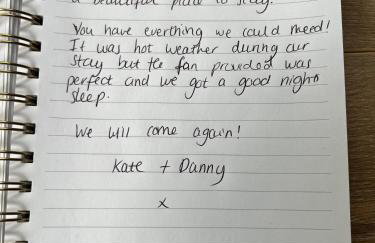 a beautiful place to stay.
You have everthing we could need!
It was hot weather during our
stay but the fan provided was
perfect and we got a good nights
sleep.
We will come again!
Kate + Danny
x